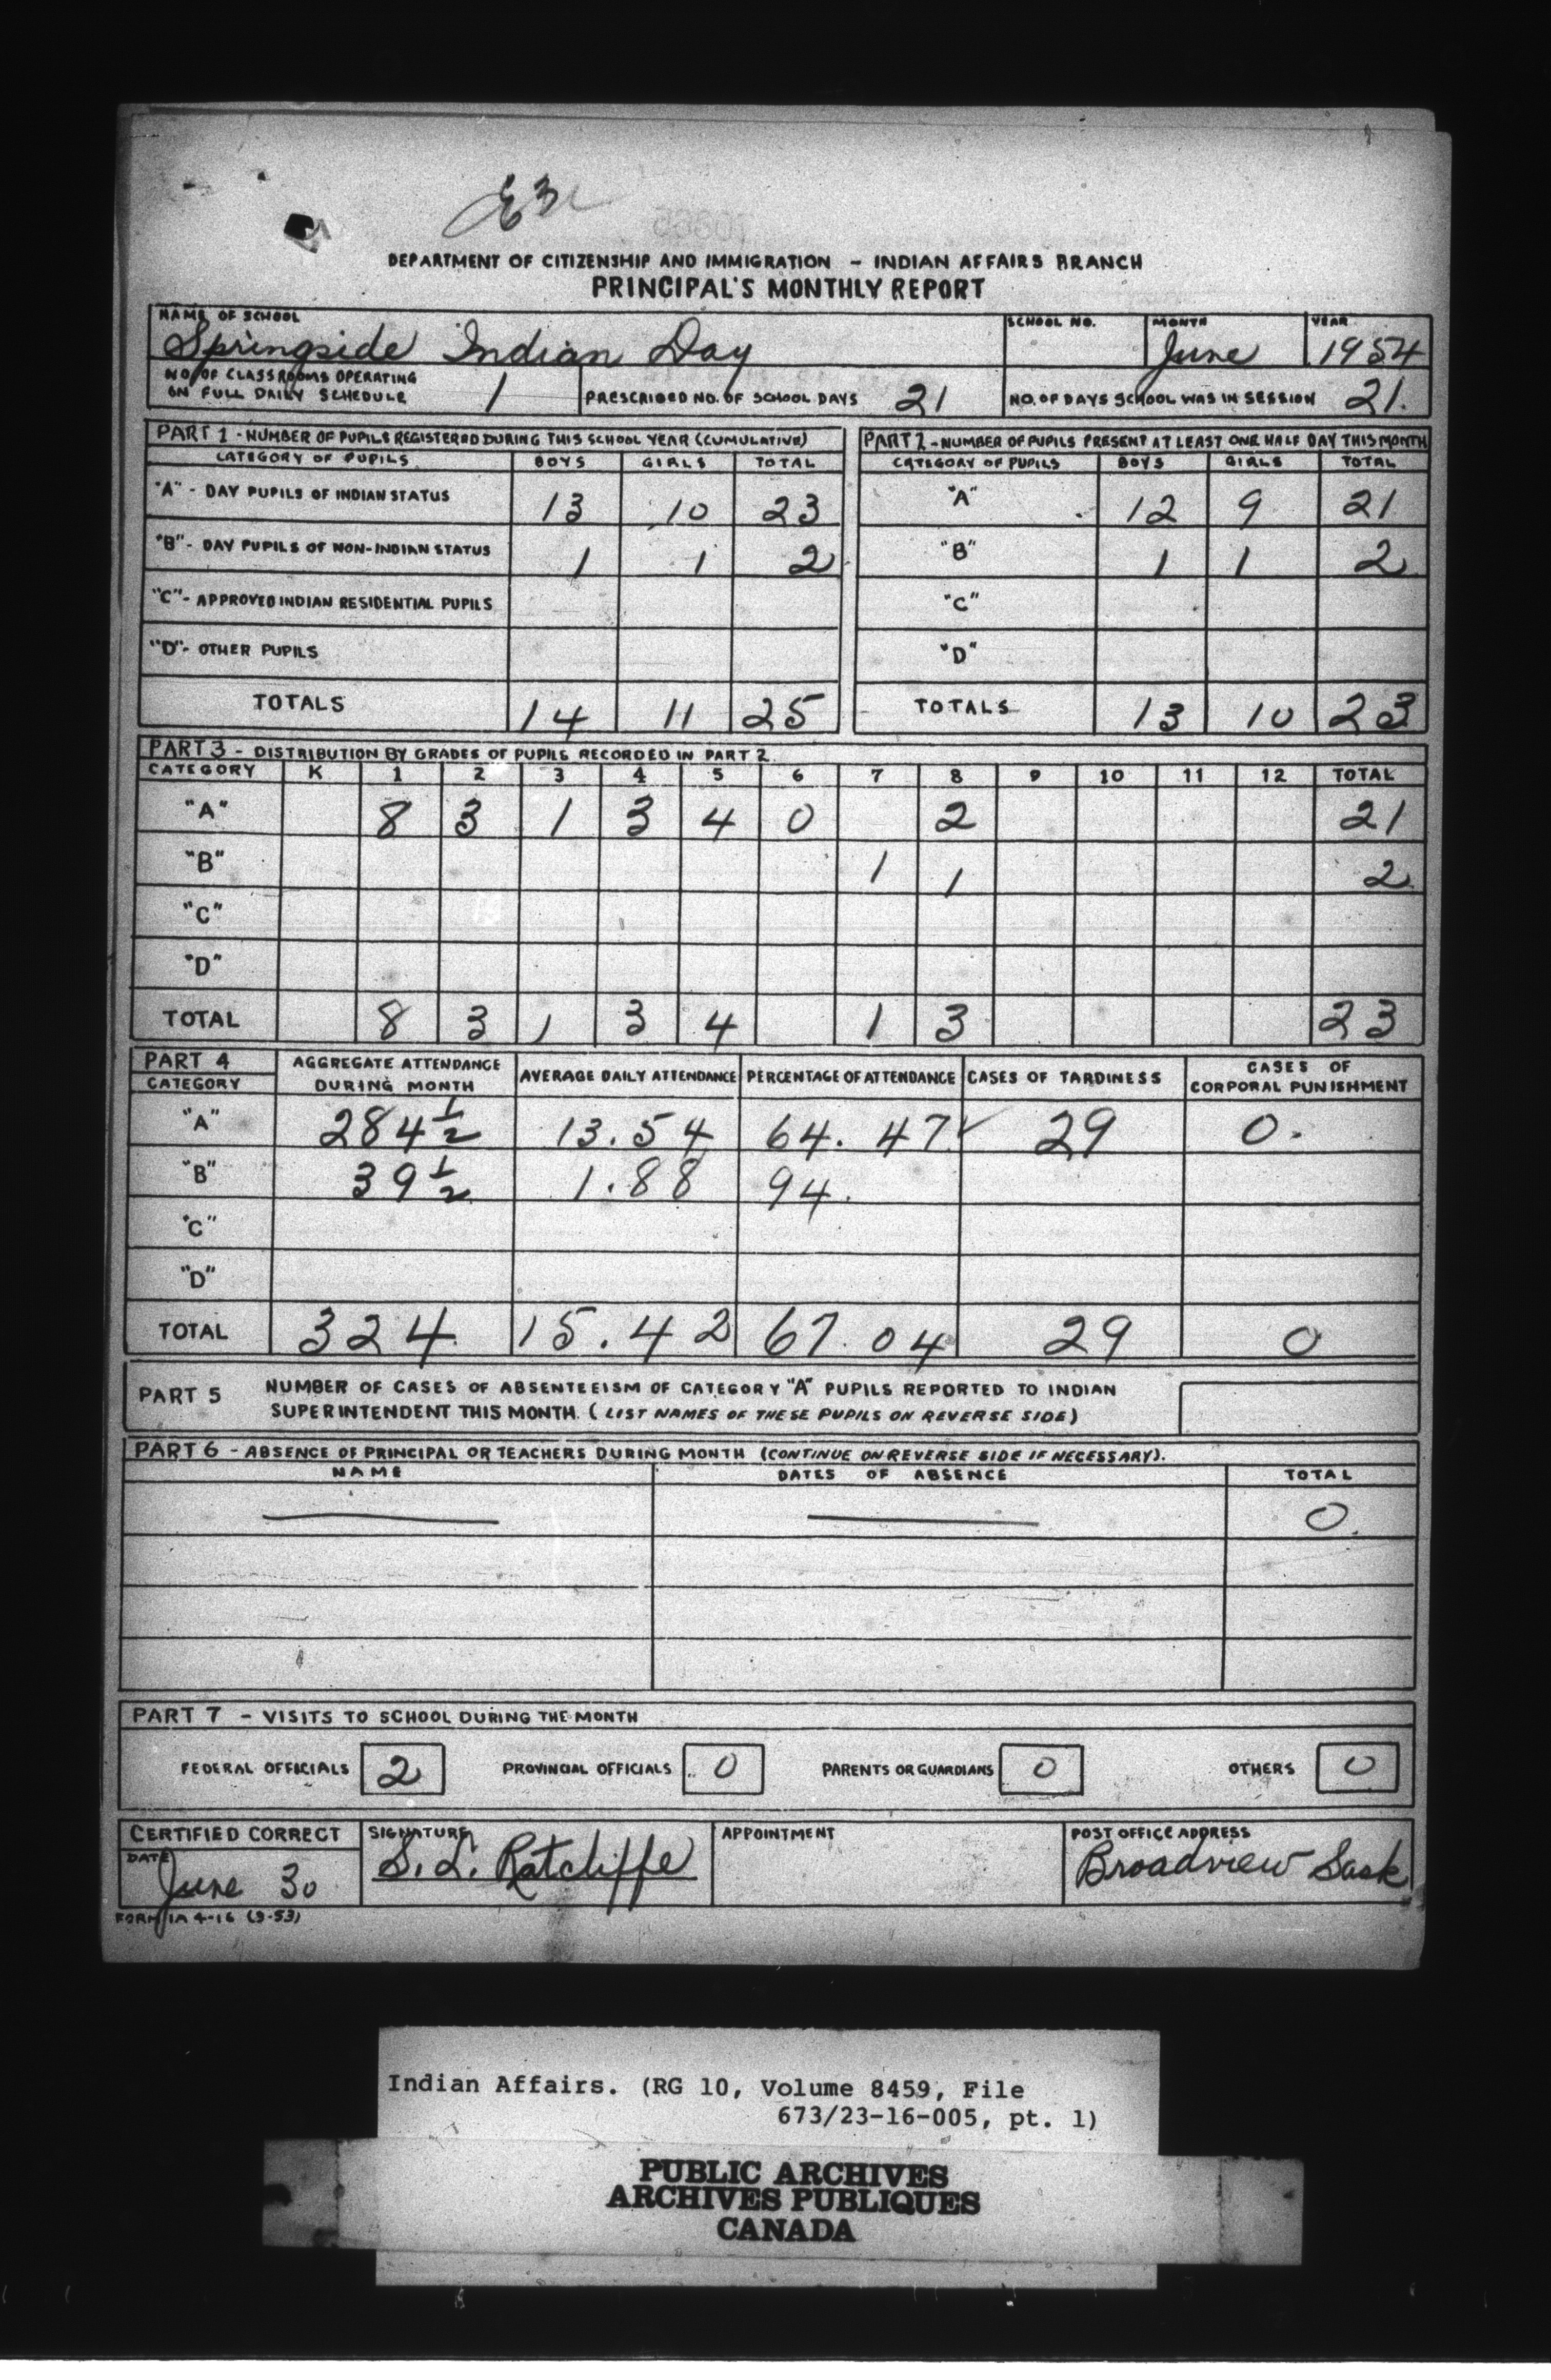 DEPARTMENT OF CITIZENSHIP AND IMMIGRATION - INDIAN AFFAIRS BRANCH
PRINCIPAL'S MONTHLY REPORT
NAME OF SCHOOL SCHOOL NO. MONTH YEAR
Springside Indian Day June 1954
NO. OF CLASSROOMS OPERATING
ON FULL DAILY SCHEDULE 1 PRESCRIBED NO. OF SCHOOL DAYS 21 NO. OF DAYS SCHOOL WAS IN SESSION 21.
PART 1 - NUMBER OF PUPILS REGISTERED DURING THIS SCHOOL YEAR (CUMULATIVE)
CATEGORY OF PUPILS BOYS GIRLS TOTAL
"A" - DAY PUPILS OF INDIAN STATUS 13 10 23
"B" - DAY PUPILS OF NON-INDIAN STATUS 1 1 2
"C" - APPROVED INDIAN RESIDENTIAL PUPILS
"D" - OTHER PUPILS
TOTALS 14 11 25
PART 2 - NUMBER OF PUPILS PRESENT AT LEAST ONE HALF DAY THIS MONTH
CATEGORY OF PUPILS BOYS GIRLS TOTAL
"A" 12 9 21
"B" 1 1 2
"C"
"D"
TOTALS 13 10 23
PART 3 - DISTRIBUTION BY GRADES OF PUPILS RECORDED IN PART 2
CATEGORY K 1 2 3 4 5 6 7 8 9 10 11 12 TOTAL
"A" 8 3 1 3 4 0 2 21
"B" 1 1 2
"C"
"D"
TOTAL 8 3 1 3 4 1 3 23
PART 4
CATEGORY AGGREGATE ATTENDANCE DURING MONTH AVERAGE DAILY ATTENDANCE PERCENTAGE OF ATTENDANCE CASES OF TARDINESS CASES OF CORPORAL PUNISHMENT
"A" 284 1/2 13.54 64.47 ✓ 29 0.
"B" 39 1/2 1.88 94.
"C"
"D"
TOTAL 324 15.42 67.04 29 0
PART 5 NUMBER OF CASES OF ABSENTEEISM OF CATEGORY "A" PUPILS REPORTED TO INDIAN
SUPERINTENDENT THIS MONTH. (LIST NAMES OF THESE PUPILS ON REVERSE SIDE)
PART 6 - ABSENCE OF PRINCIPAL OR TEACHERS DURING MONTH (CONTINUE ON REVERSE SIDE IF NECESSARY).
NAME DATES OF ABSENCE TOTAL
0.
PART 7 - VISITS TO SCHOOL DURING THE MONTH
FEDERAL OFFICIALS 2 PROVINCIAL OFFICIALS 0 PARENTS OR GUARDIANS 0 OTHERS 0
CERTIFIED CORRECT SIGNATURE APPOINTMENT POST OFFICE ADDRESS
DATE June 30 S. L. Ratcliffe Broadview Sask
FORM IA 4-16 (9-53)
Indian Affairs. (RG 10, Volume 8459, File
673/23-16-005, pt. 1)
PUBLIC ARCHIVES
ARCHIVES PUBLIQUES
CANADA